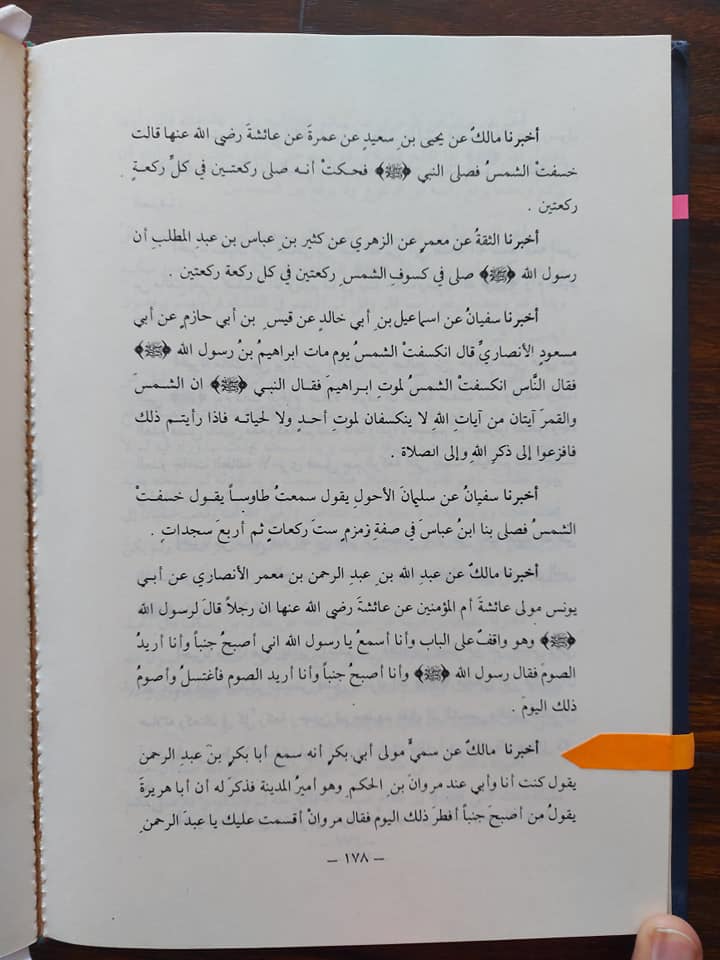 أخبرنا مالكٌ عن يحيى بن سعيدٍ عن عمرةَ عن عائشةَ رضى الله عنها قالت
خسفتْ الشمسُ فصلى النبي ﴿ﷺ﴾ فحكتْ أنه صلى ركعتين في كلِّ ركعةٍ
ركعتين .
أخبرنا الثقةُ عن معمرٍ عن الزهري عن كثير بن عباس بن عبد المطلبِ أن
رسول الله ﴿ﷺ﴾ صلى في كسوفِ الشمسِ ركعتين في كل ركعة ركعتين .
أخبرنا سفيانُ عن اسماعيل بن أبي خالدٍ عن قيسِ بن أبي حازمٍ عن أبي
مسعودٍ الأنصاريِّ قال انكسفتْ الشمسُ يوم مات ابراهيمُ بنُ رسول الله ﴿ﷺ﴾
فقال النَّاس انكسفتْ الشمسُ لموتِ ابراهيمَ فقال النبي ﴿ﷺ﴾ ان الشمسَ
والقمرَ آيتان من آياتِ اللهِ لا ينكسفان لموتِ أحدٍ ولا لحياته فاذا رأيتم ذلك
فافزعوا إلى ذكرِ اللهِ وإلى الصلاة .
أخبرنا سفيان عن سليمانَ الأحولِ يقول سمعتُ طاوساً يقول خسفتْ
الشمسُ فصلى بنا ابنُ عباسَ في صفةِ زمزمٍ ستَ ركعاتٍ ثم أربعَ سجداتٍ .
أخبرنا مالكٌ عن عبدِ الله بنِ عبدِ الرحمن بن معمر الأنصاري عن أبي
يونس مولى عائشةَ أم المؤمنين عن عائشةَ رضى الله عنها ان رجلاً قالَ لرسول الله
﴿ﷺ﴾ وهو واقفٌ على الباب وأنا أسمعُ يا رسول الله اني أصبحُ جنباً وأنا أريدُ
الصومَ فقال رسول الله ﴿ﷺ﴾ وأنا أصبحُ جنباً وأنا أريد الصوم فأغتسلُ وأصومُ
ذلك اليوم .
أخبرنا مالكٌ عن سميٍّ مولى أبي بكرٍ أنه سمع أبا بكرٍ بنَ عبدِ الرحمن
يقول كنت أنا وأبي عند مروانَ بنِ الحكمِ وهو أميرُ المدينة فذكرَ له أن أبا هريرةَ
يقولُ من أصبحَ جنباً أفطرَ ذلك اليوم فقال مروانُ أقسمت عليك يا عبدَ الرحمنِ
– ١٧٨ –